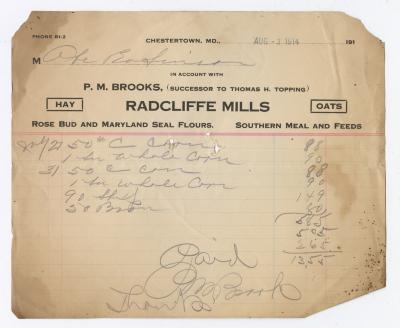 PHONE 81-2
CHESTERTOWN, MD., AUG - 3 1914 191
M Abe Robinson
IN ACCOUNT WITH
P. M. BROOKS, (SUCCESSOR TO THOMAS H. TOPPING)
HAY RADCLIFFE MILLS OATS
ROSE BUD AND MARYLAND SEAL FLOURS. SOUTHERN MEAL AND FEEDS
21 50 # C Corn 88
1 bu Whole Corn 90
31 50 C Corn 88
1 bu Whole Corn 90
90 149
50 Bran 80
585
505
265
1355
Paid
P M Brooks
Thanks